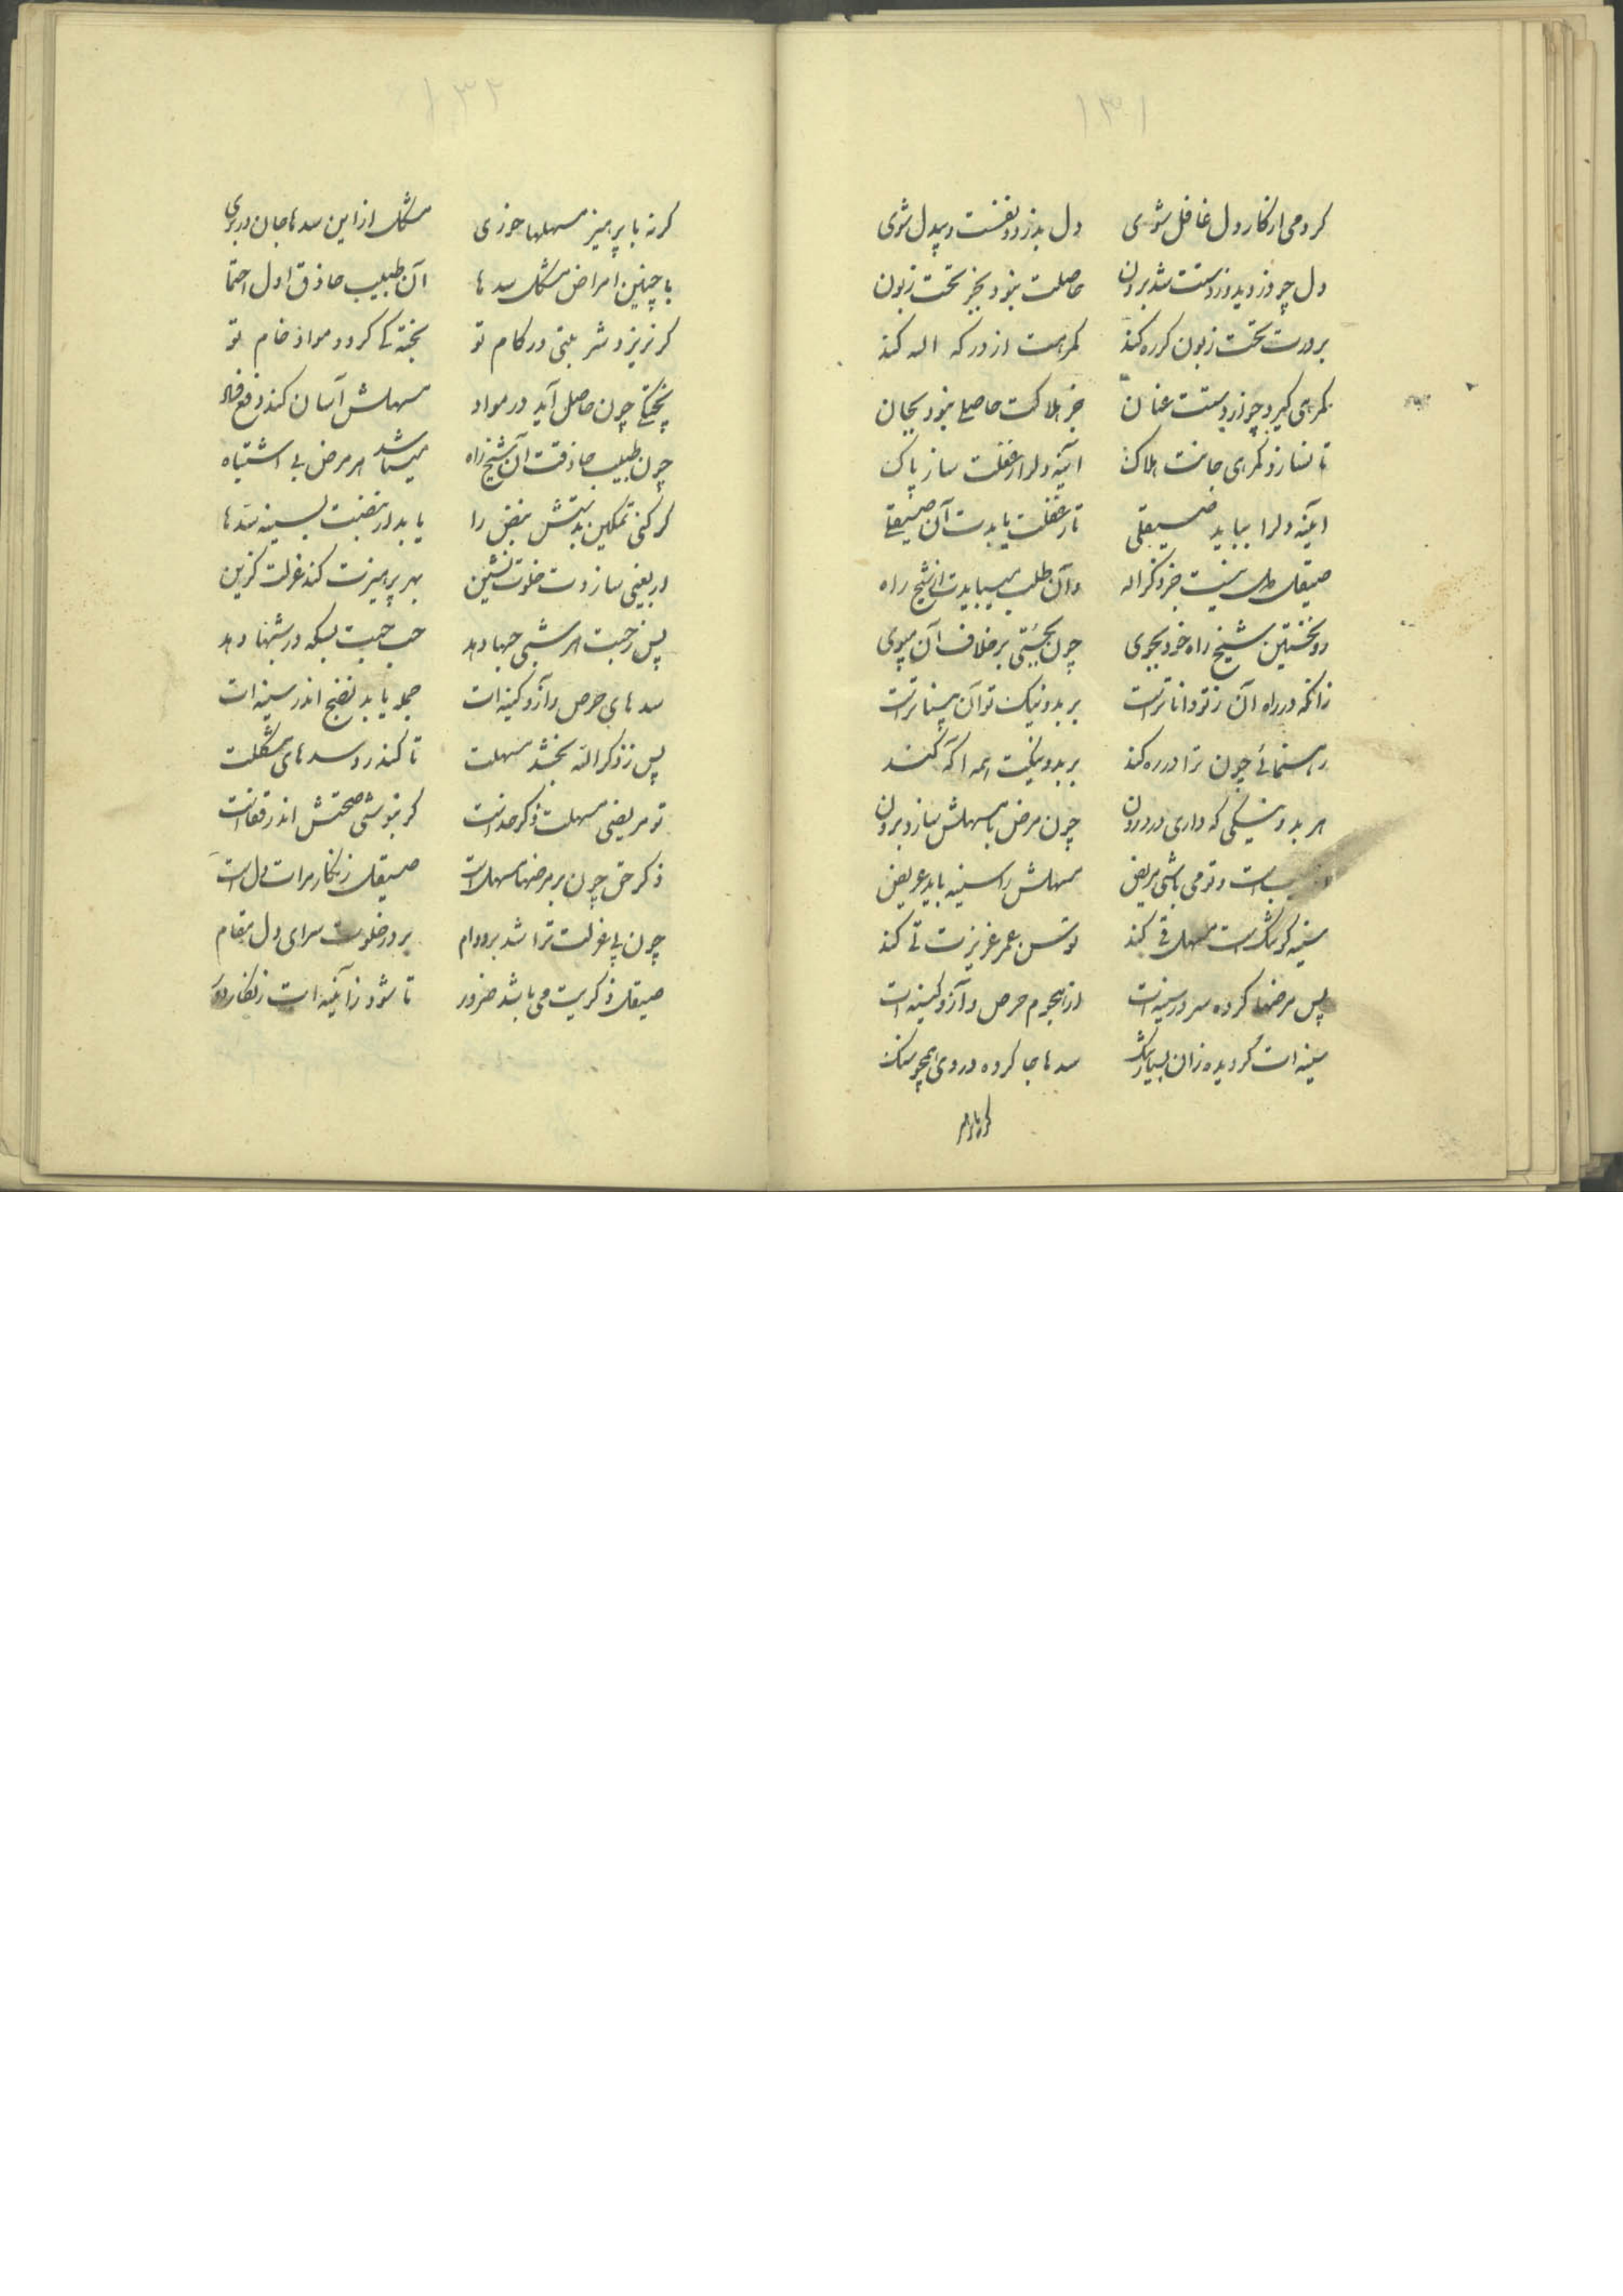 ۱۳۱
کر دمی از کار دل غافل شوی دل بدزدد نفست و بیدل شوی
دل چو دزدید و ز دستت شد برون حاصلت نبود بجز بخت زبون
بر درت بخت زبون کر ره کند کمرهت از درکه اله کند
کمرهی کیرد چو از دستت عنان جز هلاکت حاصلی نبود بجان
تا نسازد کمرهی جانت هلاک آینه دلرا ز غفلت ساز پاک
آینه دلرا بباید صیقلی تا ز غفلت یابدت آن صیقلی
صیقل دل نیست جز ذکر اله وآن طلب میبایدت از شیخ راه
رو نخستین شیخ راه خود بجوی چون بجستی بر خلاف آن مپوی
زانکه در راه آن ز تو داناتر است بر بد و نیک تو آن بیناتر است
رهنمائی چون ترا در ره کند بر بد و نیکت همه آکه کند
هر بد و نیکی که داری در درون چون مرض با مسهلش سازد برون
طبیب است و تو می باشی مریض مسهلش را سینه باید عریض
سینه کر تنک است مسهل قی کند توسن عمر عزیزت طی کند
پس مرضها کرده سر در سینه ات از هجوم حرص و آز و کینه ات
سینه ات کردیده زان بسیار تنک سدها جا کرده در وی همچو سنک
کر نه با پرهیز
۱۳۲
کر نه با پرهیز مسهلها خوری مشکل از این سدها جان در بری
با چنین امراض مشکل سدها آن طبیب حاذق اول احتما
کر نریزد شربتی در کام تو پخته کی کردد مواد خام تو
پختکی چون حاصل آید در مواد مسهلش آسان کند دفع فساد
چون طبیب حاذقت آن شیخ راه میشناسد هر مرض بی اشتباه
کر کنی تمکین بدستش نبض را یابد از نبضت بسینه سدها
اربعینی سازدت خلوت نشین بهر پرهیزت کند عزلت کزین
پس ز حبت هر شبی حبها دهد حب حبت بسکه در شبها دهد
سدهای حرص و آز و کینه ات جمله یابد نضج اندر سینه ات
پس ز ذکر الله بخشد مسهلت تا کند رد سدهای مشکلت
تو مریضی مسهلت ذکر خداست کر بنوشی صحتش اندر قفاست
ذکر حق چون بر مرضها مسهل است صیقل زنکار مرات دل است
چون پی عزلت ترا شد بر دوام بر در خلوت سرای دل مقام
صیقل ذکریت می باشد ضرور تا شود ز آینه ات زنکار دور